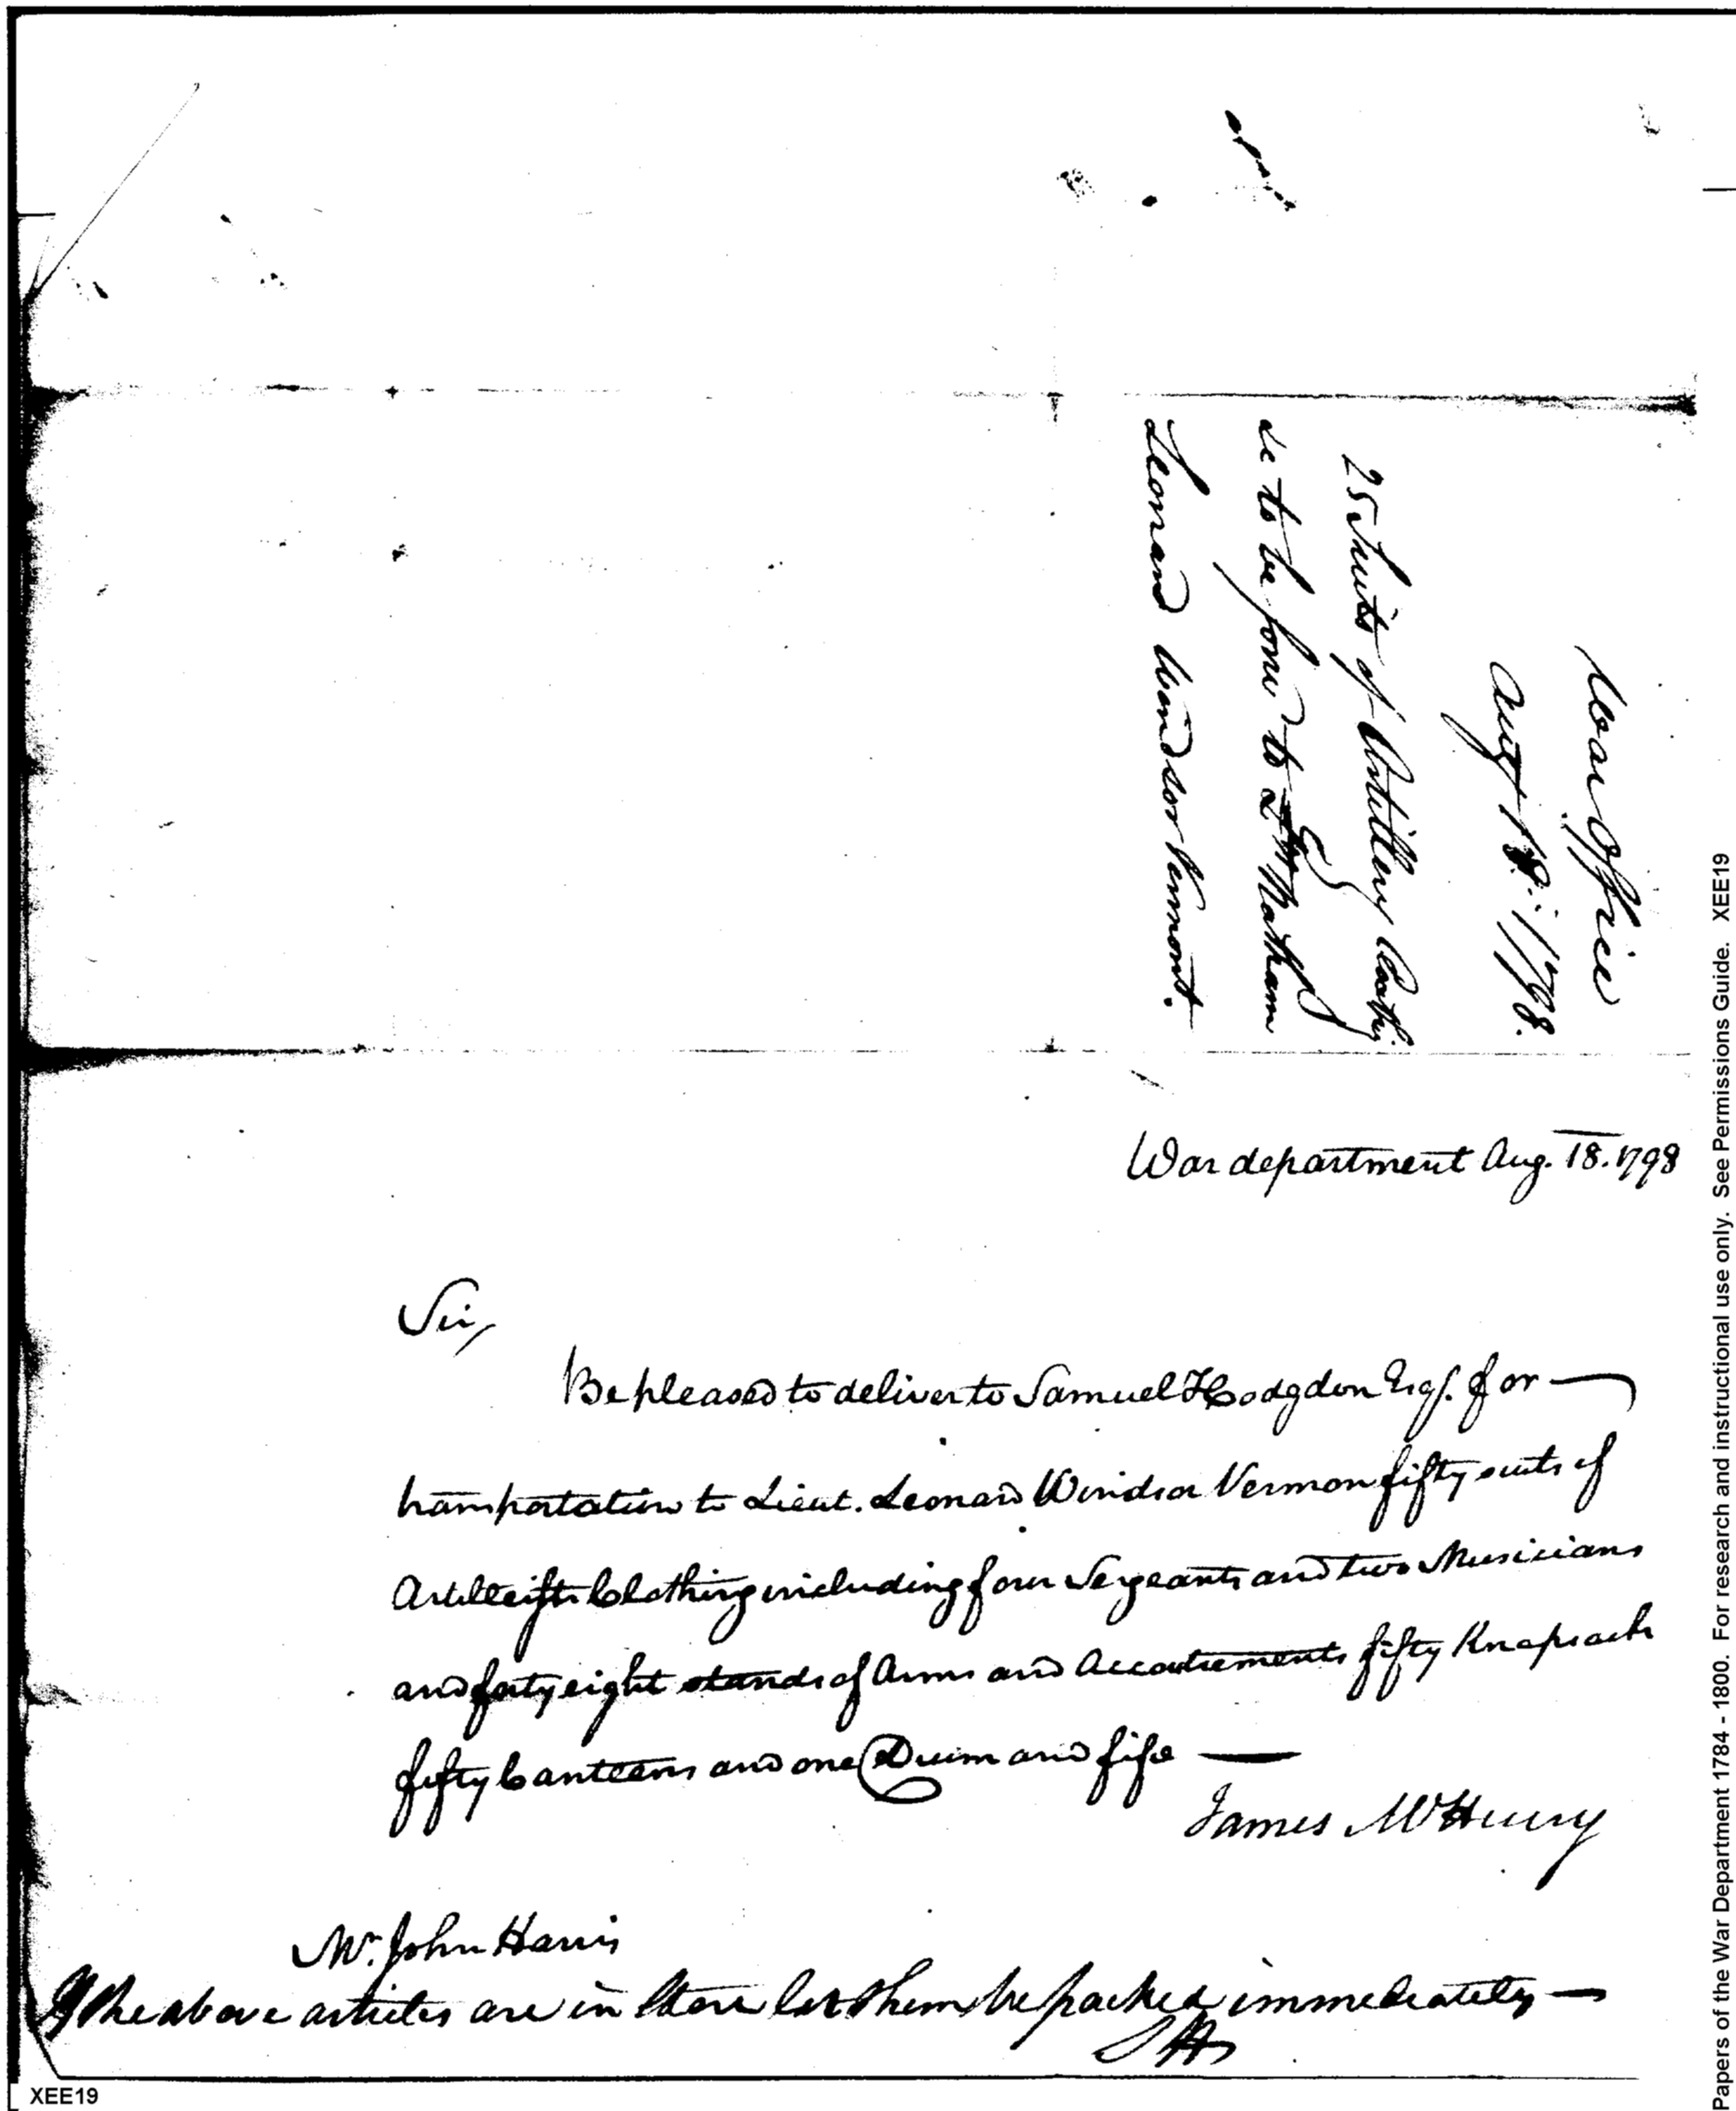 War Office
Augt 18. 1798.
25 Suits of Artillery Cloathg
&c to be forwd to Lt Nathan
Leonard Windsor Vermont.
War department Aug. 18. 1798
Sir,
Be pleased to deliver to Samuel Hodgdon Esqr. for —
transportation to Lieut. Leonard Windsor Vermon fifty suits of
Artillerists Clothing including four Sergeants and two Musicians
and forty eight stands of Arms and Accoutrements fifty Knapsacks
fifty Canteens and one Drum and fife —
James McHenry
Mr. John Harris
If the above articles are in Store let them be packed immediately —
SH
XEE19
Papers of the War Department 1784 - 1800. For research and instructional use only. See Permissions Guide. XEE19